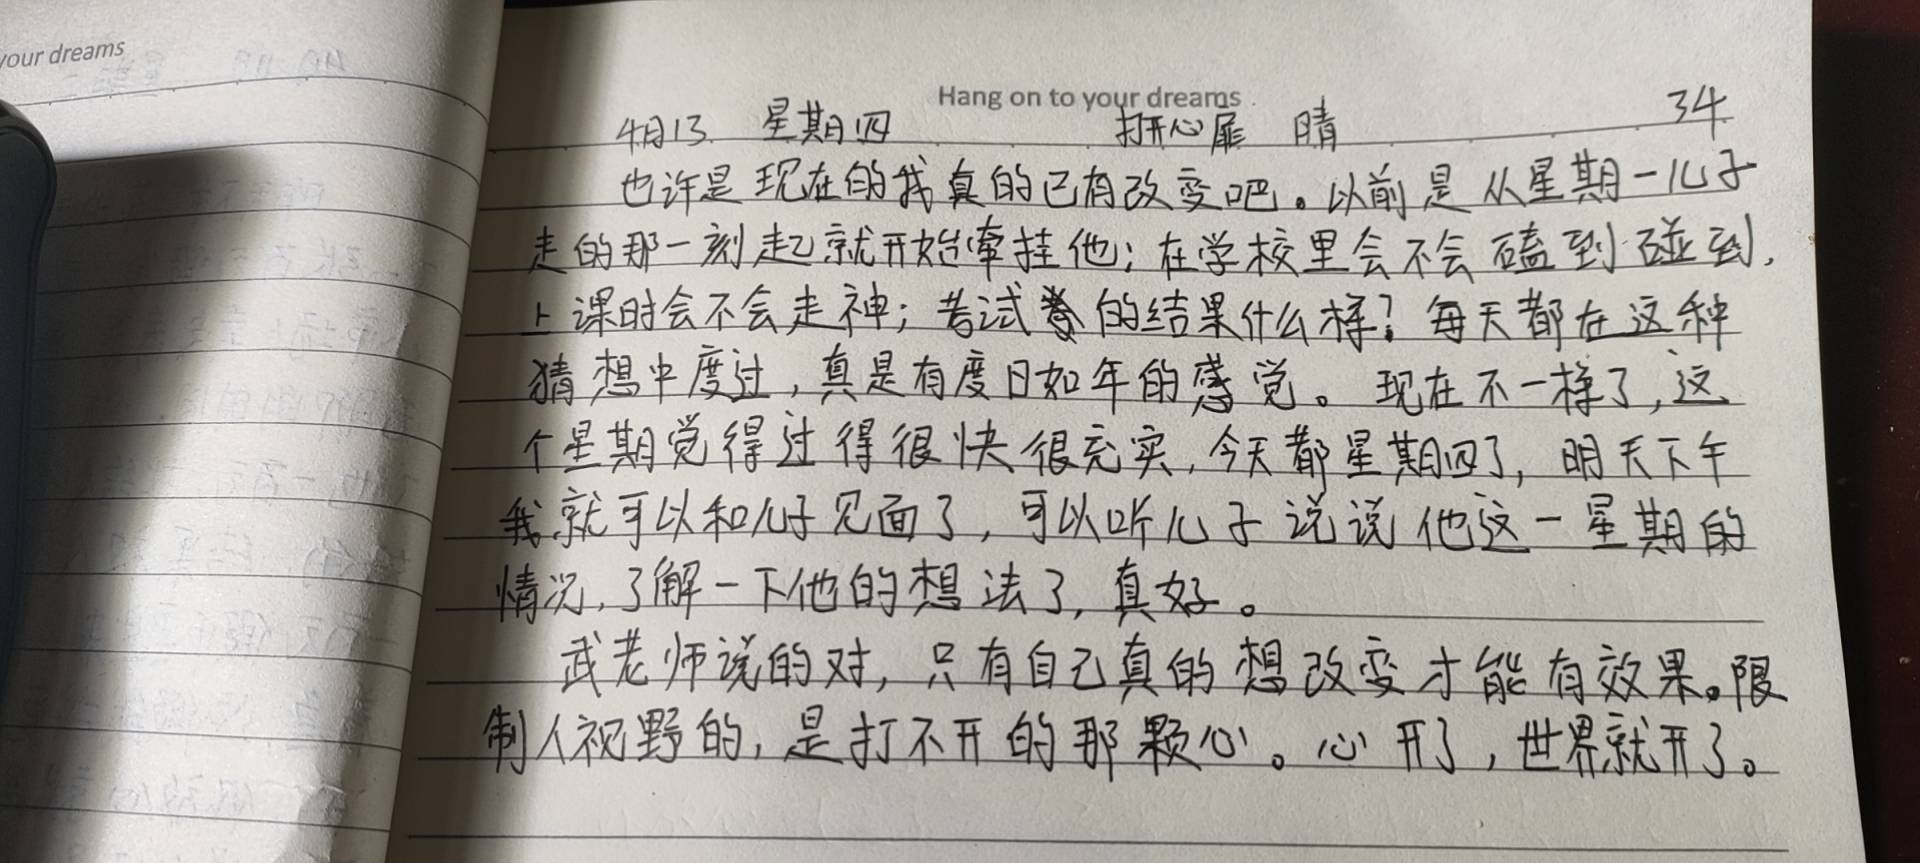 your dreams
Hang on to your dreams
4月13 星期四 打开心扉 晴 34
也许是现在的我真的已有改变吧。以前是从星期一儿子
走的那一刻起就开始牵挂他；在学校里会不会磕到碰到，
上课时会不会走神；考试卷的结果什么样？每天都在这种
猜想中度过，真是有度日如年的感觉。现在不一样了，这
个星期觉得过得很快很充实，今天都星期四了，明天下午
我就可以和儿子见面了，可以听儿子说说他这一星期的
情况，了解一下他的想法了，真好。
武老师说的对，只有自己真的想改变才能有效果。限
制人视野的，是打不开的那颗心。心开了，世界就开了。